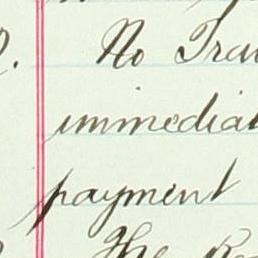 No Tra
immedia
payment
The